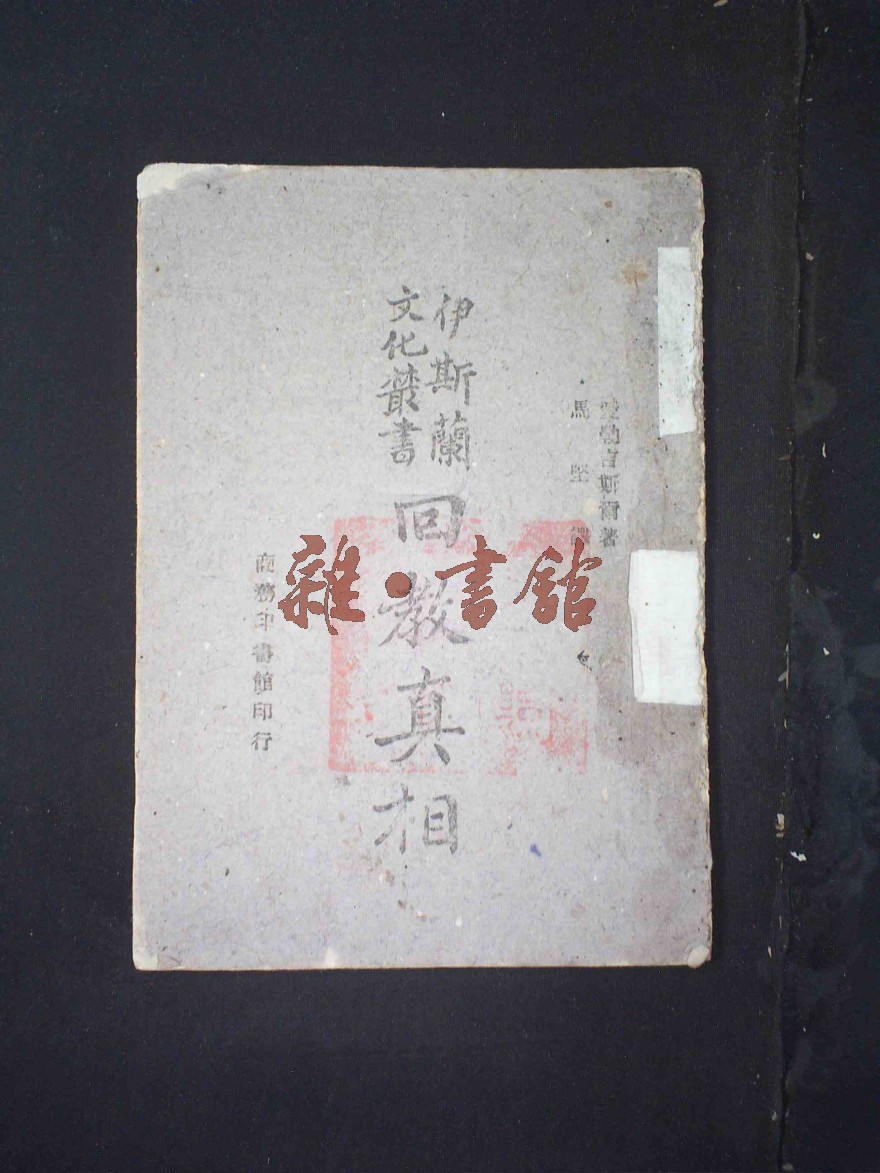 愛勒吉斯爾著
馬堅譯
伊斯蘭
文化叢書
回教真相
商務印書館印行
雜·書館